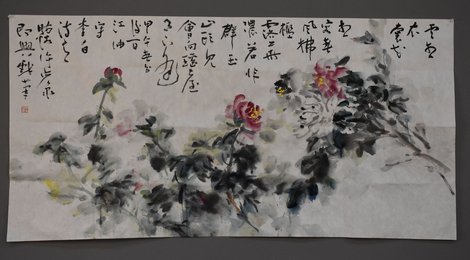 雲想
衣
裳花
想
容春
風拂
檻
露華
濃若非
群玉
山頭見
會向瑤臺
月下逢
甲午
江油
李白
詩意
即興戲筆